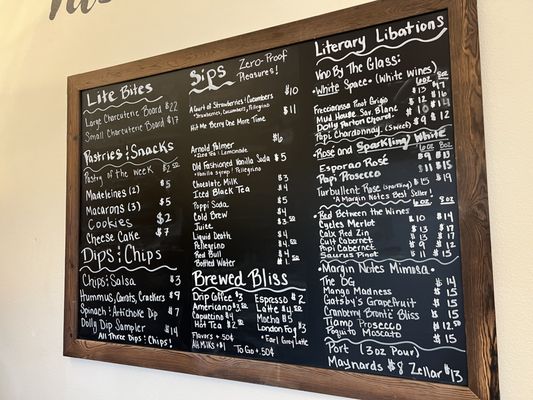 Lite Bites
Large Charcuterie Board $22
Small Charcuterie Board $17
Pastries & Snacks
Pastry of the week $2.50
Madeleines (2) $5
Macarons (3) $5
Cookies $2
Cheese Cake $7
Dips & Chips
Chips & Salsa $3
Hummus, Carots, Crackers $9
Spinach & Artichoke Dip $7
Dolly Dip Sampler $14
All Three Dips & Chips!
Sips Zero-Proof
Pleasures!
A Court of Strawberries & Cucumbers $10
Strawberries, Cucumbers, Pellegrino
Hit Me Berry One More Time $11
Arnold Palmer $6
Iced Tea & Lemonade
Old Fashioned Vanilla Soda $5
Vanilla Syrup & Pellegrino
Chocolate Milk $3
Iced Black Tea $4
Poppi Soda $5
Cold Brew $4
Juice $3.50
Liquid Death $4
Pellegrino $4
Red Bull $4
Bottled Water
Brewed Bliss
Drip Coffee $3
Americano $3
Caputtino $4
Hot Tea $2
Flavors .50¢
Alt Milks
To Go .50¢
Espresso $2
Latte $4
Mocha $5
London Fog $3
Earl Grey Latte
Literary Libations
Vino By The Glass:
White Space (White Wines) 6oz 8oz
Freciarossa Pinot Grigio
Mud House Sav. Blanc
Dolly Parton Chard.
Papi Chardonnay (Sweet) $9 $12
Rosé and Sparkling White
6oz 8oz
Esporao Rosé $9 $13
Papi Prosecco $11 $15
Turbulent Rosé (Sparkling) $15 $19
A Margin Notes Best Seller!
6oz 8oz
Red Between the Wines
Cycles Merlot $10 $14
Calx Red Zin $13 $17
Cult Cabernet $13 $17
Papi Cabernet $9 $12
Saurus Pinot $11 $15
Margin Notes Mimosa
The OG $14
Mango Madness $15
Gatsby's Grapefruit $15
Cranberry Brontë Bliss $15
Tiamo Prosecco $12.50
Poquito Moscato $15
Port (3oz Pour)
Maynards $8 Zellar $13